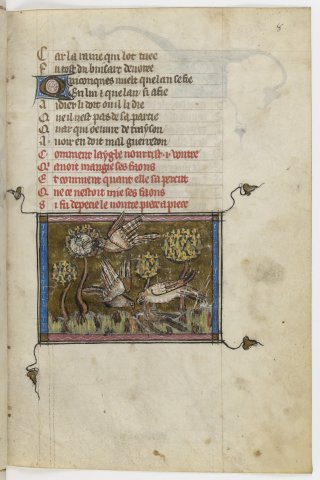 8
Car la raine qui lot tuee
Fu tost du buisart deuoree
Quiconques uuelt quelan se fie
En lui et quelan si afie
Aidier li doit ou il li die
Que il nest pas de sa partie
Quar qui oeuure de trayson
Auoir en doit mal guerredon
Comment laygle nourrist le
Quanoit mangie ses faons
Et comment quant elle sapercut
Que ce nestoit mie ses faons
Si fu depecie le uoutre piece a piece